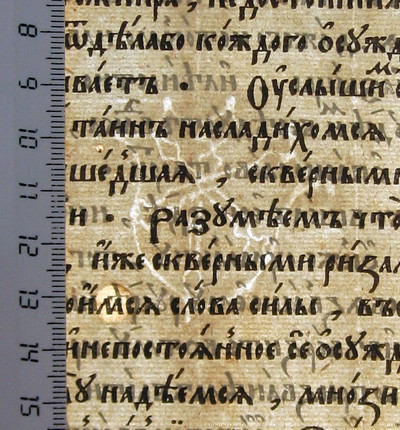 ѿдѣлабо кождого ѡсужд
иваетъ · Оуслыши
таинъ насладихомсѧ
шедшаѧ , скверными
и · Разумѣемъ что
, иже скверными риза
оимсѧ слова силы , въ
инепостоѧнное сѐ ѡсужд
у надѣемсѧ , мнози
8
9
10
11
12
13
14
15